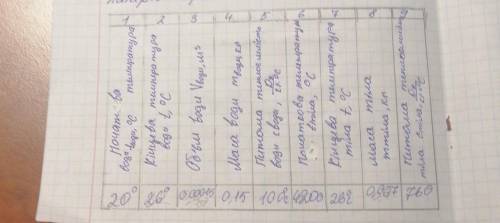 1 2 3 4 5 6 7 8 9
температура
Кінцева температура
води t, °С
Об'єм води Vводи, м³
Маса води mводи, кг
Питома теплоємність
води cводи,
Початкова температура
t тіла, °С
Кінцева температура
тіла t, °С
Маса тіла
mтіла, кг
Питома теплоємність
тіла cтіла,
20° 26° 0,00015 0,15 100° 4200 26° 760